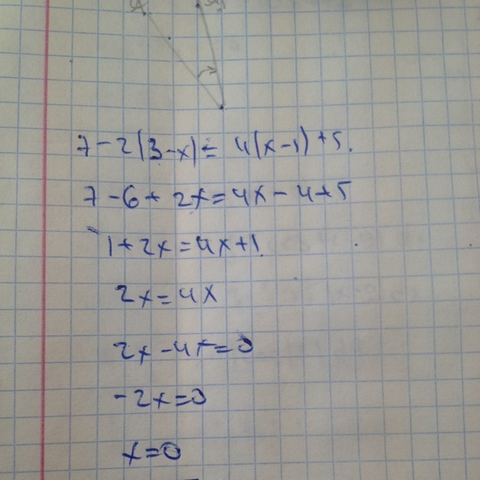 7-2(3-x)=4(x-1)+5.
7-6+2x=4x-4+5
1+2x=4x+1
2x=4x
2x-4x=0
-2x=0
x=0